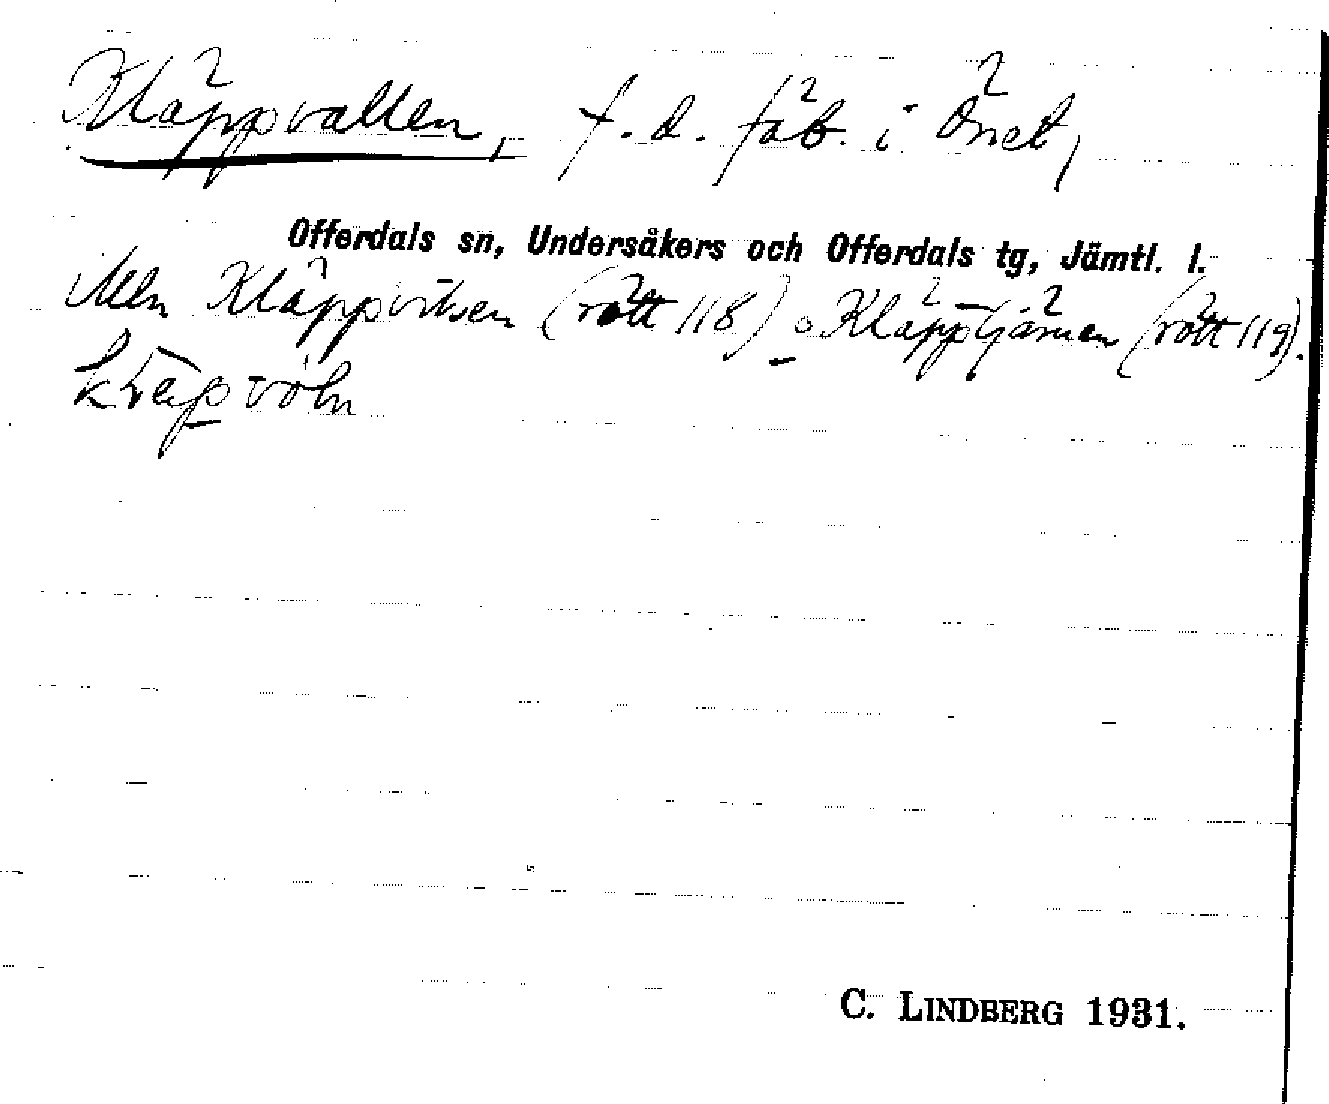 Kläppvallen, f. d. fäb. i Önet,
Offerdals sn, Undersåkers och Offerdals tg, Jämtl. l.
Mln Kläppvilsen (rött 118) o Kläpptjärnen (rött 119).
C. LINDBERG 1931.